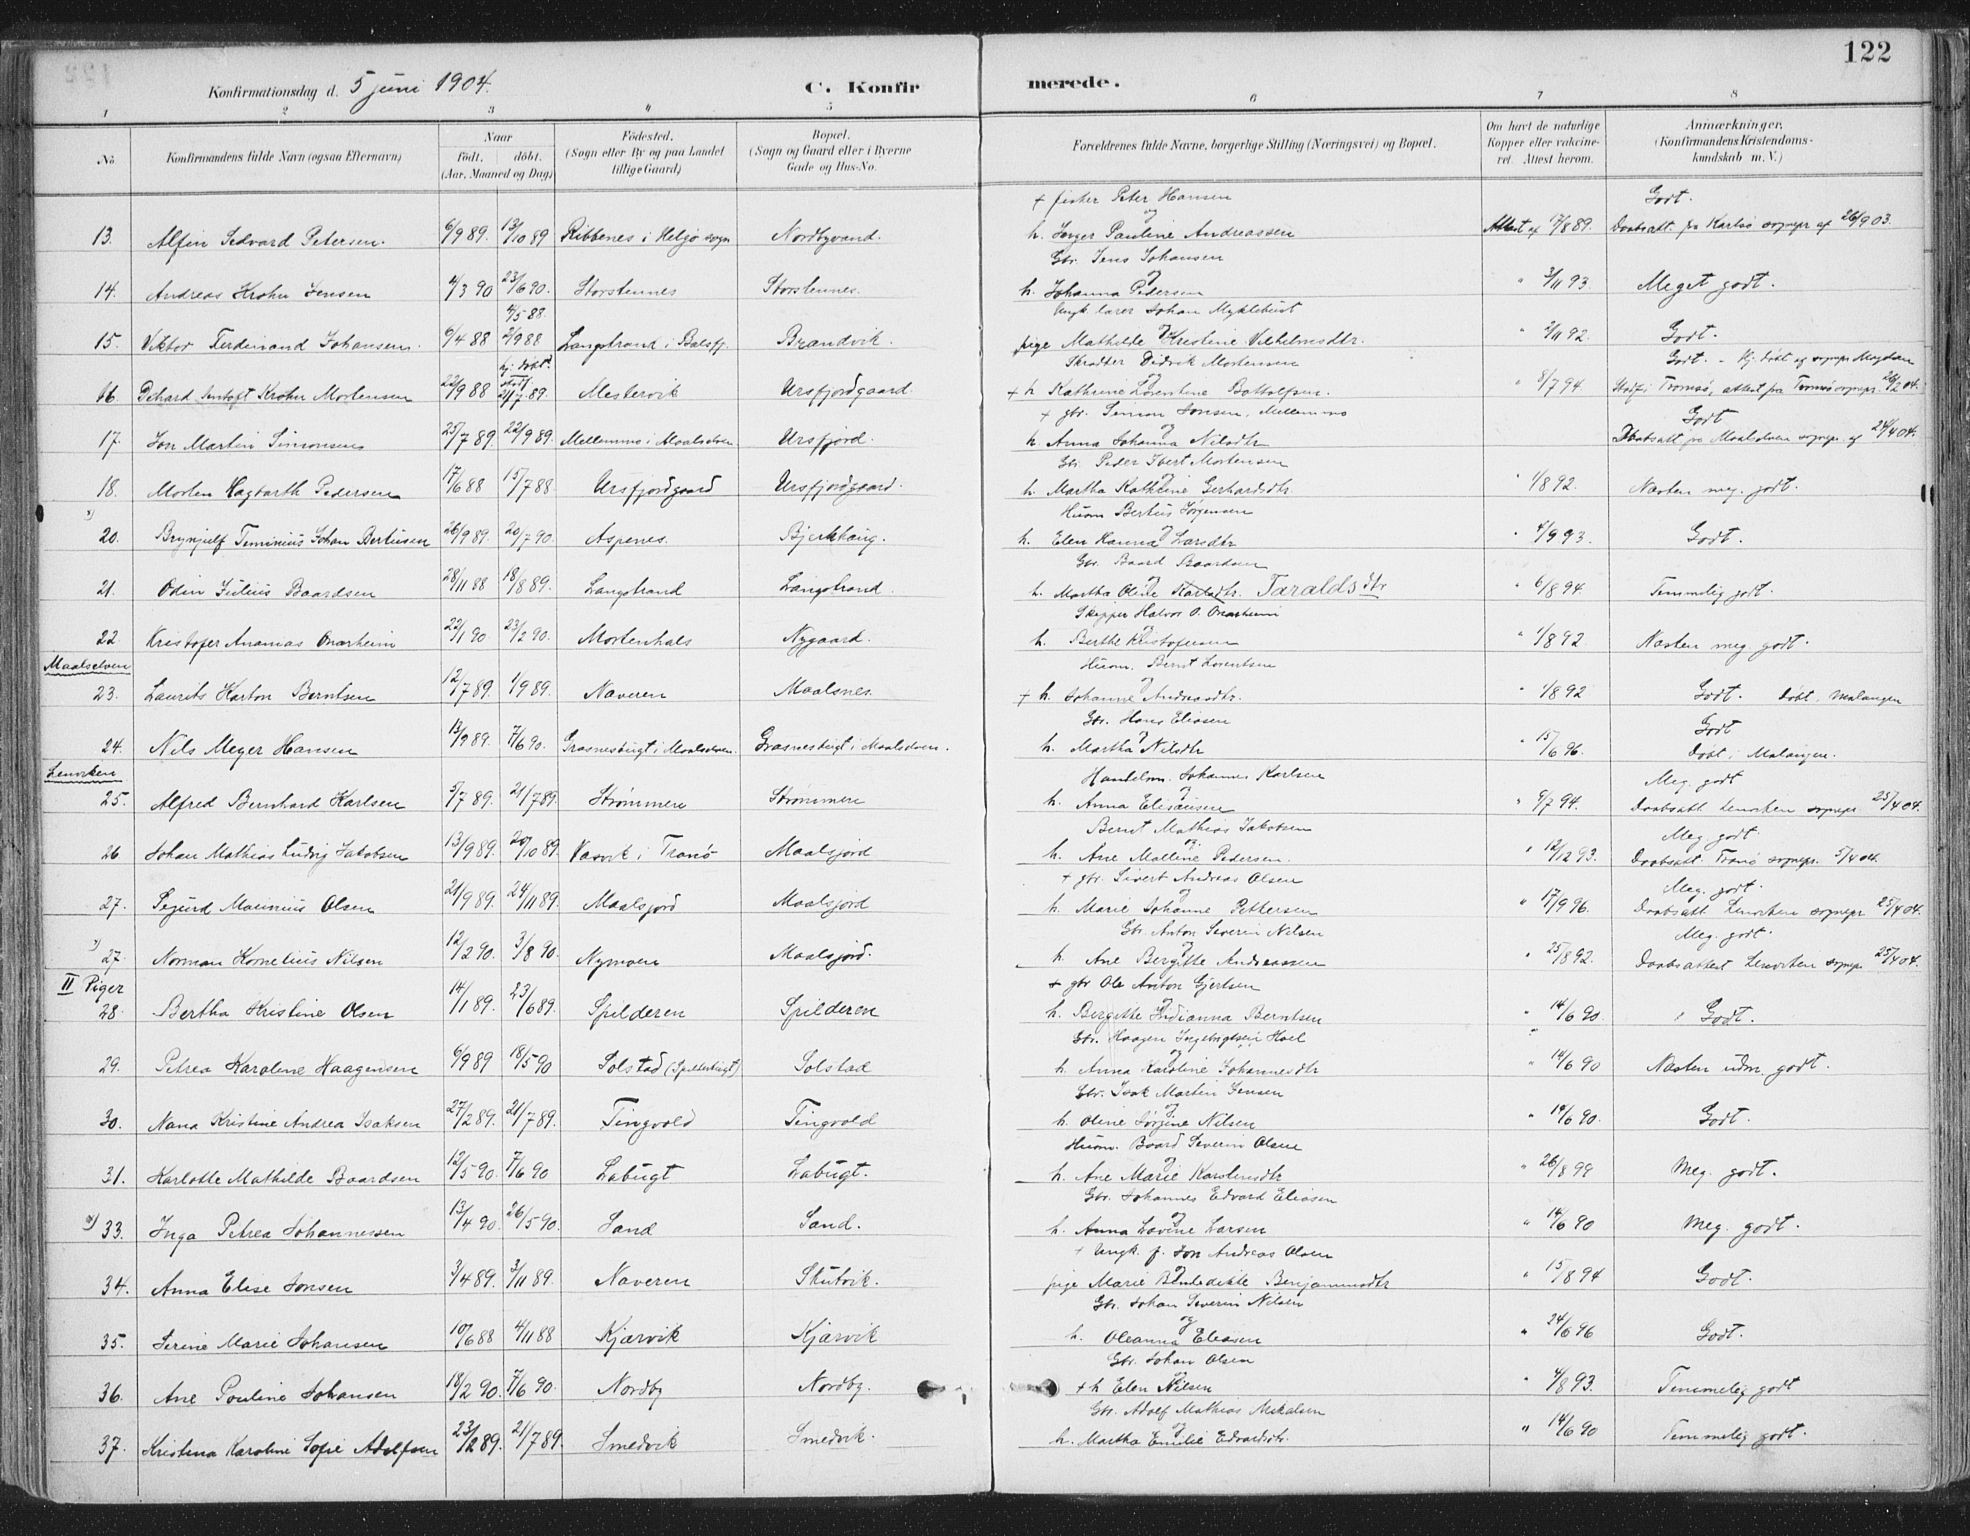 122
Konfirmationsdag d. 5 juni 1904.
C. Konfirmerede.
1 2 3 4 5 6 7 8
No
Konfirmandens fulde Navn (ogsaa Efternavn)
Naar født. døbt. (Aar, Maaned og Dag)
Fødested. (Sogn eller By og paa Landet tillige Gaard)
Bopæl. (Sogn og Gaard eller i Byerne Gade og Hus-No.
Forældrenes fulde Navne, borgerlige Stilling (Næringsvei) og Bopæl.
Om havt de naturlige Kopper eller vakcineret. Attest herom.
Anmærkninger. (Konfirmandens Kristendomskundskab m. V.)
+ fisker Peter Hansen Godt.
13. Alfin Edvard Petersen. 6/9 89. 13/10 89 Ribbenes i Helgø sogn Nordbyvand. og h. Inger Pauline Andreassen Attest af 7/8 89. Daabsatt. fra Karlsø sognepr af 26/9 03.
Gbr. Jens Johansen
14. Andreas Krohn Jensen 4/3 90 23/6 90. Storstennes Storstennes. og h. Johanna Pedersen " 3/11 93 Meget godt.
4/5 88. Ungk. lærer Johan Myklebust
15. Viktor Ferdinand Johansen. 6/4 88 2/9 88 Langstrand i Balsfj. Brandvik. og pige Mathilde Kristine Vilhelmsdtr. " 2/11 92. Godt.
hj. døbt. Skrædder Didrik Mortensen Godt. - Hj. døbt af sognepr
16 Gerhard Krohn Mortensen 22/9 88 stadf. 21/7 89. Mestervik Ursfjordgaard og + h Kathrine Lorentine Bottolfsen. " 8/7 94 Stadf. i Tromsø, attest fra Tromsø sognepr. 26/2 04.
+ gbr. Simon Jonsen, Mellemmo Godt
17. Jon Martin Simonsen 25/7 89. 22/9 89. Mellemmo i Maalselven Ursfjord. og h. Anna Johanna Nilsdtr Daabsatt fra Maalselven sognepr. af 24/4 04.
Gbr. Peder Ibert Mortensen
18. Morten Hagbarth Pedersen 17/6 88 15/7 88. Ursfjordgaard Ursfjordgaard. og h. Martha Kathrine Gerhardsdtr. " 1/8 92. Næsten meg. godt.
Husm Bertus Jørgensen
20. Brynjulf Teminius Johan Bertusen 26/9 89. 20/7 90. Aspenes. Bjerkhaug. og h. Elen Hanna Larsdtr " 4/9 93. Godt.
Gbr. Baard Baardsen
21. Odin Julius Baardsen 28/11 88 18/8 89. Langstrand Langstrand. og h. Martha Oline Taraldsdtr " 6/8 94 Temmelig godt.
Skipper Halvor O. Onarheim
22 Kristofer Ananias Onarheim 22/1 90. 23/2 90. Mortenhals Nygaard. og h. Berthe Kristofersen " 1/8 92 Næsten meg. godt.
Maalselven Husm. Bernt Lorentsen
23. Laurits Karton Berntsen 12/7 89. 1/9 89. Naveren Maalsnes. og + h. Johanne Andreasdtr. " 1/8 92 Godt. Døbt. Malangen
Gbr. Hans Eliasen Godt
24. Nils Meyer Hansen 13/9 89. 7/6 90. Grasnesbugt i Maalselven. Grasnesbugt i Maalselven. og h. Martha Nilsdtr " 15/6 96. Døbt i Malangen.
Lenviken Handelsm. Johannes Karlsen Meg. godt
25. Alfred Bernhard Karlsen 5/7 89. 21/7 89. Strømmen Strømmen og h. Anna Eliseusen " 9/7 94. Daabsatt. Lenviken sognepr. 25/4 04.
Bernt Mathias Jakobsen Meg. godt
26 Johan Mathias Ludvig Jakobsen 13/9 89. 20/10 89. Vasvik i Tranø Maalsjord og h. Ane Malline Pedersen. " 12/12 93. Daabsatt. Tranø sognepr. 5/4 04.
+ gbr. Sivert Andreas Olsen Meg. godt.
27. Sigurd Marinius Olsen 21/9 89. 24/11 89. Maalsjord Maalsjord og h. Marie Johanne Pettersen " 17/9 96. Daabsatt Lenviken sognepr 25/4 04.
Gbr. Anton Severin Nilsen Meg. godt.
27. Norman Kornelius Nilsen 12/2 90. 3/8 90. Nymoen Maalsjord. og h. Ane Bergitte Andreassen " 25/8 92. Daabsattest Lenviken sognepr 25/4 04.
II Piger + gbr Ole Anton Gjertsen
28. Bertha Kristine Olsen 14/1 89. 23/6 89. Spilderen Spilderen og h. Bergitte Indianna Berntsen " 14/6 90. Godt.
Gbr. Haagen Ingebrigtsen Hoel
29. Petrea Karoline Haagensen 6/9 89 18/5 90 Solstad (Spilderbugt) Solstad og h. Anna Karoline Johannesdtr " 14/6 90 Næsten udm. godt.
Gbr. Isak Martin Jensen
30. Nana Kristine Andrea Isaksen 27/2 89. 21/7 89. Tingvold Tingvold og h. Oline Jørgine Nilsen " 14/6 90. Godt.
Husm. Baard Severin Olsen
31. Karlotte Mathilde Baardsen 12/5 90. 7/6 90 Labugt Labugt. og h. Ane Marie Karolinesdtr " 26/8 99 Meg. godt.
Gbr. Johannes Edvard Eliasen
33. Inga Petrea Johannessen 13/4 90. 26/5 90. Sand Sand. og h. Anna Lovine Larsen " 14/6 90 Meg. godt.
+ Ungk. f. Jon Andreas Olsen
34. Anna Elise Jonsen 3/4 89. 3/11 89. Naveren Skutvik. og pige Marie Benedikte Benjaminsdtr " 15/8 94 Godt.
Gbr. Johan Severin Nilsen
35. Serine Marie Johansen 10/6 88 4/11 88 Kjærvik Kjærvik og h. Oleanna Eliasen " 24/6 96 Godt.
Gbr. Johan Olsen
36. Ane Pouline Johansen 18/2 90. 7/6 90 Nordby Nordby. og + h Elen Nilsen " 4/8 93. Temmelig godt
Gbr. Adolf Mathias Mikalsen
37. Kristina Karoline Sofie Adolfsen 23/2 89. 21/7 89. Smedvik Smedvik. og h. Martha Emilie Edvardsdtr. " 14/6 90 Temmelig godt.